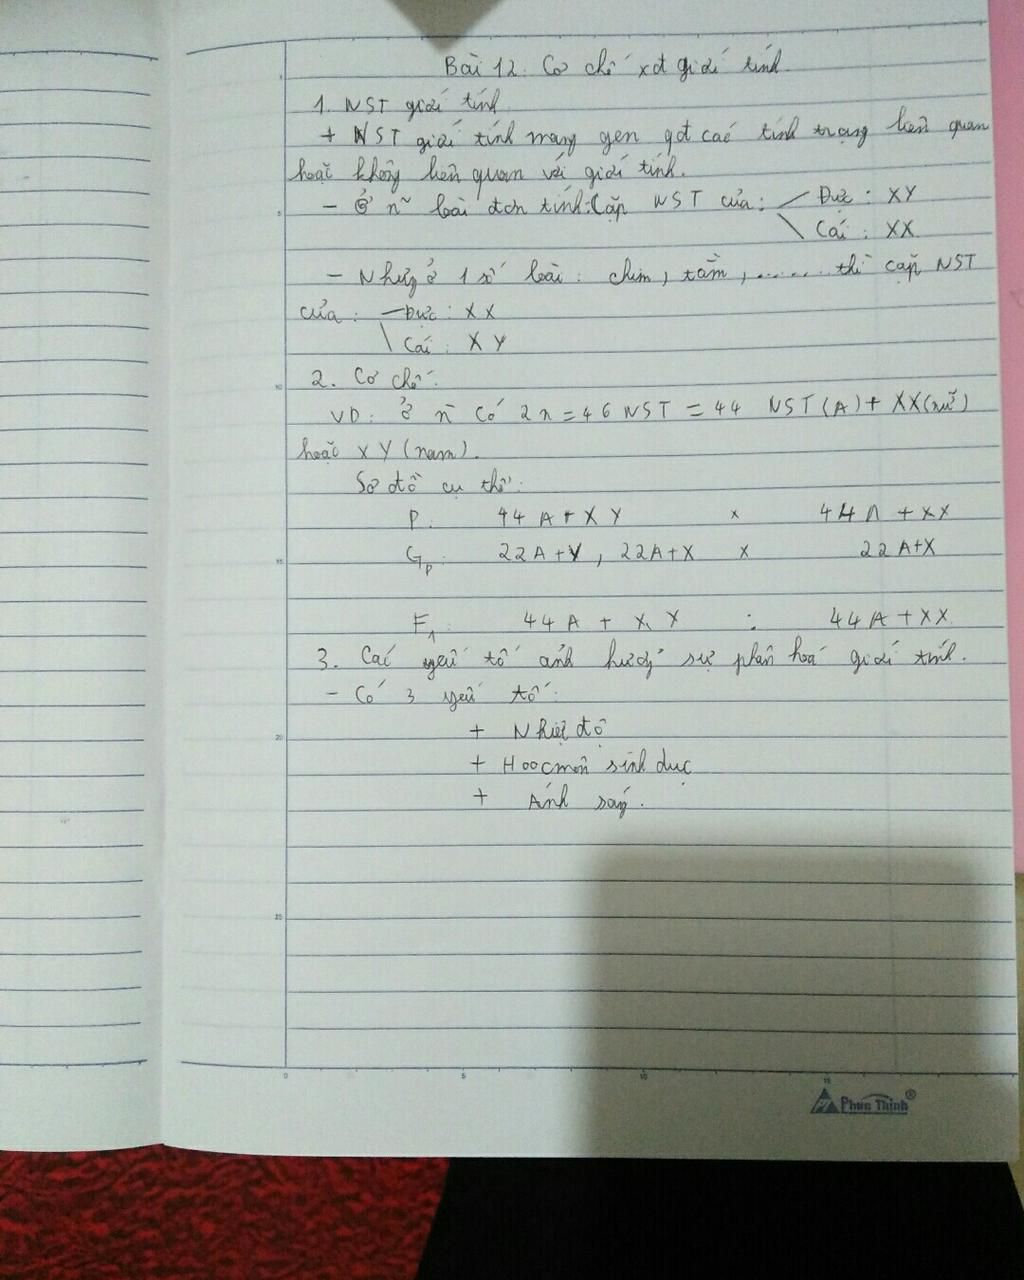 Bài 12. Cơ chế xđ giới tính.
1. NST giới tính
+ NST giới tính mang gen qđ các tính trạng liên quan
hoặc không liên quan với giới tính.
- Ở n~ loài đơn tính: Cặp NST của: Đực : XY
Cái : XX
- Nhưng ở 1 số loài: chim, tằm, ........ thì cặp NST
của: Đực : XX
Cái : XY
2. Cơ chế:
VD: Ở n có 2n = 46 NST = 44 NST (A) + XX (nữ)
hoặc XY (nam).
Sơ đồ cụ thể:
P: 44 A + XY x 44 A + XX
Gp: 22A + Y, 22A + X x 22A+X
F1: 44A + XY : 44A + XX
3. Các yếu tố ảnh hưởng sự phân hoá giới tính.
- Có 3 yếu tố:
+ Nhiệt độ
+ Hoocmôn sinh dục
+ Ánh sáng.
5
10
15
20
25
0 5 10 15
Phúc Thịnh®